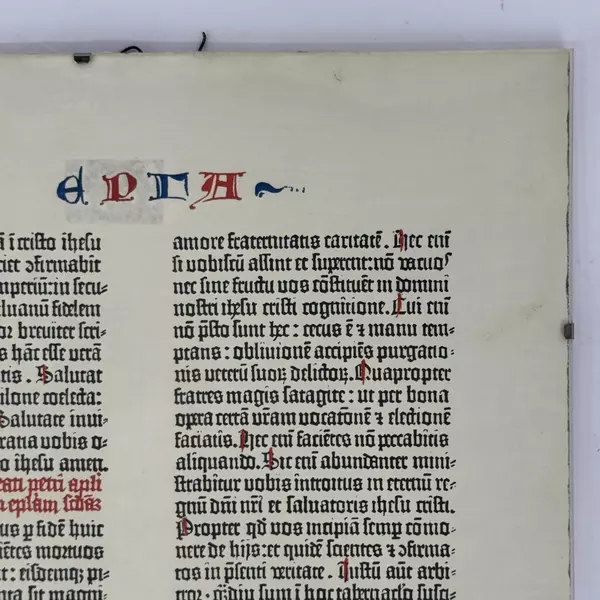 EPLA
ā ī cristo ihesu
ciet ↄfirmabit
mperiū: in secu-
luanū fidelem
or breviter scri-
s hāc esse verā
tis. Salutat
ilone coelecta:
Salutate invi-
ratia vobis o-
o ihesu amen.
eati petri apli
epłam scdam
us p fidē huic
iētes mortuos
t: eisdemqꝫ pi-
nta sit magni-
amore fraternitatis caritatē. Hec enī
si vobiscū assint et superent: nō vacuoſ
nec sine fructu vos cōstituēt in domini
nostri ihesu cristi cognitione. Cui enī
nō p̄sto sunt hec: cecus ē ⁊ manu tem-
ptans: oblivionē accipiēs purgatio-
nis veterū suoꝝ delictoꝝ. Quapropter
fratres magis satagite: ut per bona
opera certā vr̄am vocatōnē ⁊ electionē
faciatis. Hec enī faciētes nō peccabitis
aliquando. Sic enī abundanter mini-
strabitur vobis introitus in eternū re-
gnū dn̄i nr̄i et salvatoris ihesu cristi.
Propter qđ vos incipiā semp cōmo-
nere de hijs: et quidē scientes ⁊ ↄfirma-
tos in p̄senti veritate. Iustū aūt arbi-
tror: q̄ꝫdiu sum ī hoc tabernaclo susci-